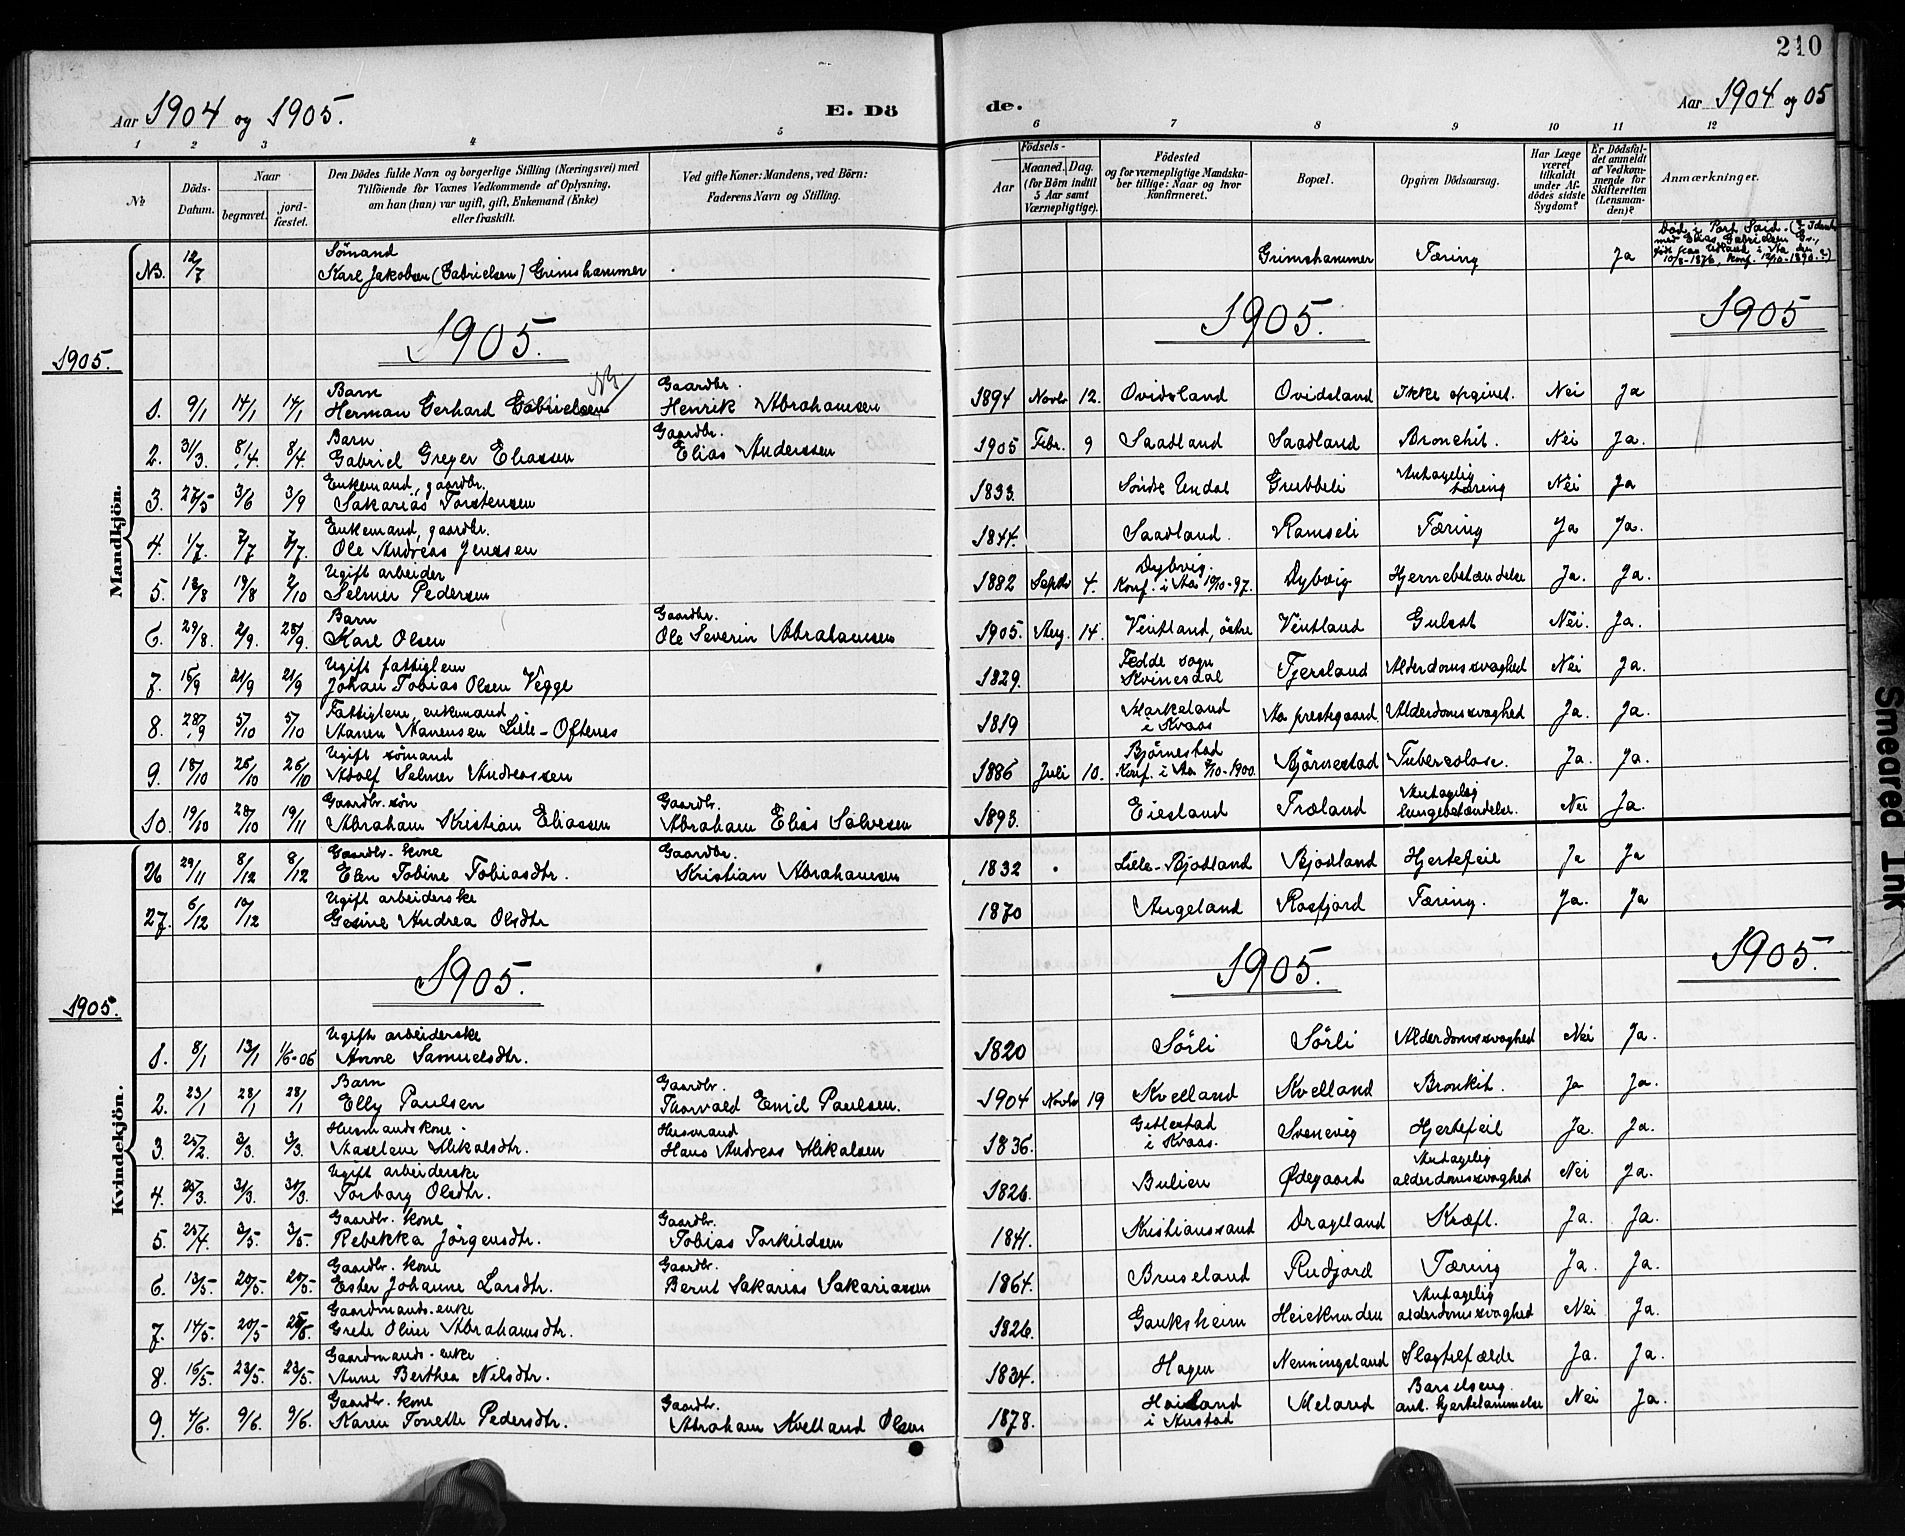 210
Aar 1904 og 1905. E. Dö de. Aar 1904 og 05
1 2 3 4 5 6 7 8 9 10 11 12
No
Döds-Datum.
Naar
begravet. jord-fæstet.
Den Dödes fulde Navn og borgerlige Stilling (Næringsvei) med
Tilföiende for Voxnes Vedkommende af Oplysning,
om han (hun) var ugift, gift, Enkemand (Enke)
eller fraskilt.
Ved gifte Koner: Mandens, ved Börn:
Faderens Navn og Stilling.
Födsels-
Aar Maaned. Dag.
(for Börn indtil
5 Aar samt
Værnepligtige).
Födested
og for værnepligtige Mandska-
ber tillige: Naar og hvor
konfirmeret.
Bopæl.
Opgiven Dödsaarsag.
Har Læge
været
tilkaldt
under Af-
dödes sidste
Sygdom?
Er Dödsfal-
det anmeldt
af Vedkom-
mende for
Skifteretten
(Lensman-
den)?
Anmærkninger.
Mandkjön.
NB. 12/7 Sømand
Karl Jakobsen (Gabrielsen) Grimshammer Grimshammer Tæring Ja
Död i Port Said. (
med Elias Gabrielsen
10/8-1876, Konf. 12/10-1890.?)
1905. 1905. 1905. 1905
1. 9/1 14/1 14/1 Barn
Herman Gerhard Gabrielsen Gaardbr.
Henrik Abrahamsen 1894 Novbr 12. Ovidsland Ovidsland Ikke opgivet. Nei Ja
2. 31/3. 8/4. 8/4. Barn
Gabriel Greger Eliassen Gaardbr.
Elias Anderssen 1905 Febr. 9 Saadland Saadland Bronchit. Nei Ja.
3. 27/5 3/6 3/9 Enkemand, gaardbr.
Sakarias Torstensen 1833. Søndre Undal Grubbeli Antagelig
tæring Nei Ja
4. 1/7. 7/7 7/7. Enkemand, gaardbr.
Ole Andreas Jenssen 1844. Saadland. Ramseli Tæring Ja Ja.
5. 13/8 19/8 2/10 Ugift arbeider
Selmer Pedersen 1882 Septbr 4. Dybvig.
Konf. i Aa 10/10-97. Dybvig Hjernebetændelse Ja. Ja.
6. 29/8. 2/9. 28/9. Barn
Karl Olsen Gaardbr.
Ole Severin Abrahamsen 1905. Aug. 14. Vintland, östre Vintland Gulsot Nei. Ja.
7. 15/9 21/9 21/9 Ugift fattiglem
Johan Tobias Olsen Vegge 1829. Fedde sogn
Kvinesdal Fjersland Alderdomssvaghed Nei Ja.
8. 28/9 5/10 5/10 Fattiglem, enkemand
Aanen Aanensen Lille-Oftenes 1819 Markeland
i Kvaas Aa prestegaard Alderdomssvaghed Ja. Ja.
9. 18/10 26/10 26/10 Ugift sømand
Adolf Selmer Andreassen 1886 Juli 10. Bjørnestad
Konf. i Aa 7/10-1900. Bjørnestad Tuberculose. Ja. Ja.
10. 19/10 28/10 19/11 Gaardbr. søn
Abraham Kristian Eliassen Gaardbr.
Abraham Elias Salvesen 1893. Eiesland Træland Antagelig
lungebetændelse. Nei Ja.
Kvindekjön.
26 29/11 8/12 8/12 Gaardbr. kone
Elen Tobine Tobiasdtr. Gaardbr.
Kristian Abrahamsen 1832 Lille-Bjodland Bjodland Hjertefeil Ja Ja
27. 6/12 19/12 Ugift arbeiderske
Gesine Andrea Olsdtr 1870 Augeland Rosfjord Tæring. Ja. Ja
1905. 1905. 1905. 1905.
1. 8/1 13/1 1/6-06 Ugift arbeiderske
Anne Samuelsdtr. 1820 Sørli Sørli Alderdomssvaghed Nei Ja.
2. 23/1 28/1 28/1 Barn
Elly Paulsen Gaardbr.
Thorvald Emil Paulsen. 1904 Novbr 19 Kvelland Kvelland Bronkit. Ja Ja.
3. 25/2. 3/3. 3/3. Husmandskone.
Aaselene Mikalsdtr. Husmand
Hans Andreas Mikalsen 1836. Gitlestad
i Kvaas. Svenevig Hjertefeil Ja. Ja.
4. 25/3. 31/3. 31/3. Ugift arbeiderske
Torborg Olsdtr. 1826. Bulien Ødegaard Antagelig
alderdomssvaghed Nei Ja.
5. 25/4. 3/5. 3/5. Gaardbr. kone
Rebekka Jörgensdtr. Gaardbr.
Tobias Torkildsen 1841. Kristianssand Drageland Kræft. Ja. Ja.
6. 13/5. 20/5. 20/5. Gaardbr. kone
Ester Johanne Larsdtr. Gaardbr.
Bernt Sakarias Sakariassen 1864. Bruseland Rudjord Tæring Ja. Ja.
7. 14/5. 20/5 25/6. Gaardmands. enke
Grete Oline Abrahamsdtr. 1826. Gauksheim Heieknuden Antagelig
alderdomssvaghed Nei Ja.
8. 16/5. 23/5. 23/5. Gaardmands. enke
Anne Berthea Nilsdtr. 1834. Hagen Nenningsland Slagtilfælde Ja. Ja.
9. 4/6. 9/6. 9/6. Gaardbr. kone
Karen Tonette Pedersdtr. Gaardbr.
Abraham Kvelland Olsen 1878. Høiland
i Austad Meland Barselseng.
ant. hjertelammelse Nei Ja.
Smeared Ink